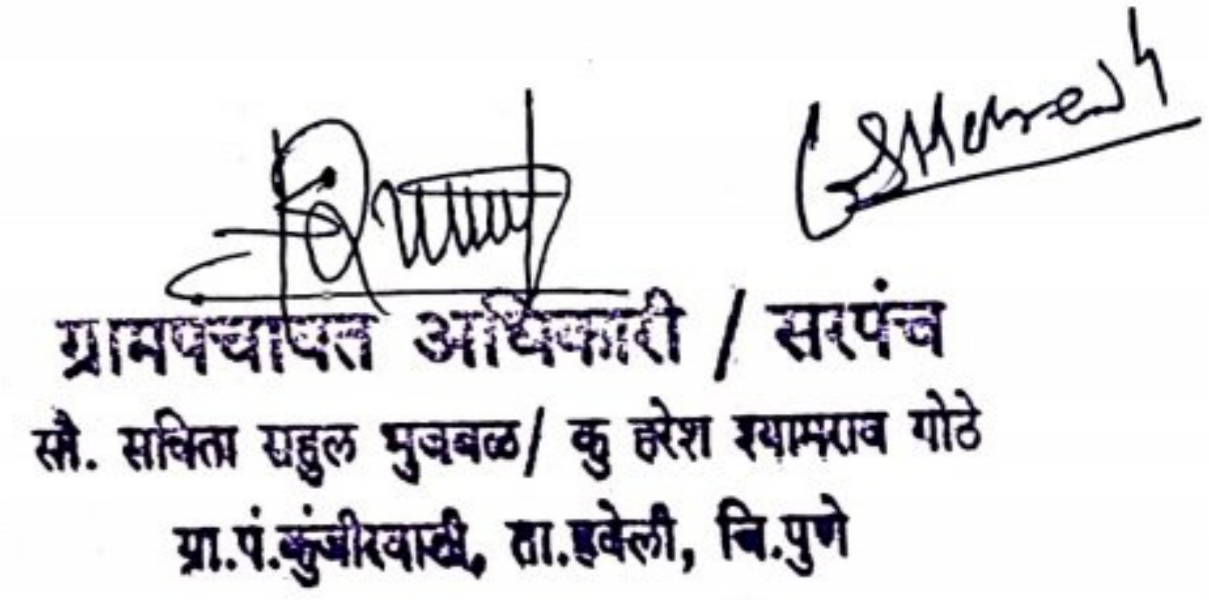 ग्रामपंचायत अधिकारी / सरपंच
सौ. सविता राहुल भुजबळ/ कु हरेश श्यामराव गोठे
ग्रा.पं.कुंजीरवाडी, ता.हवेली, जि.पुणे